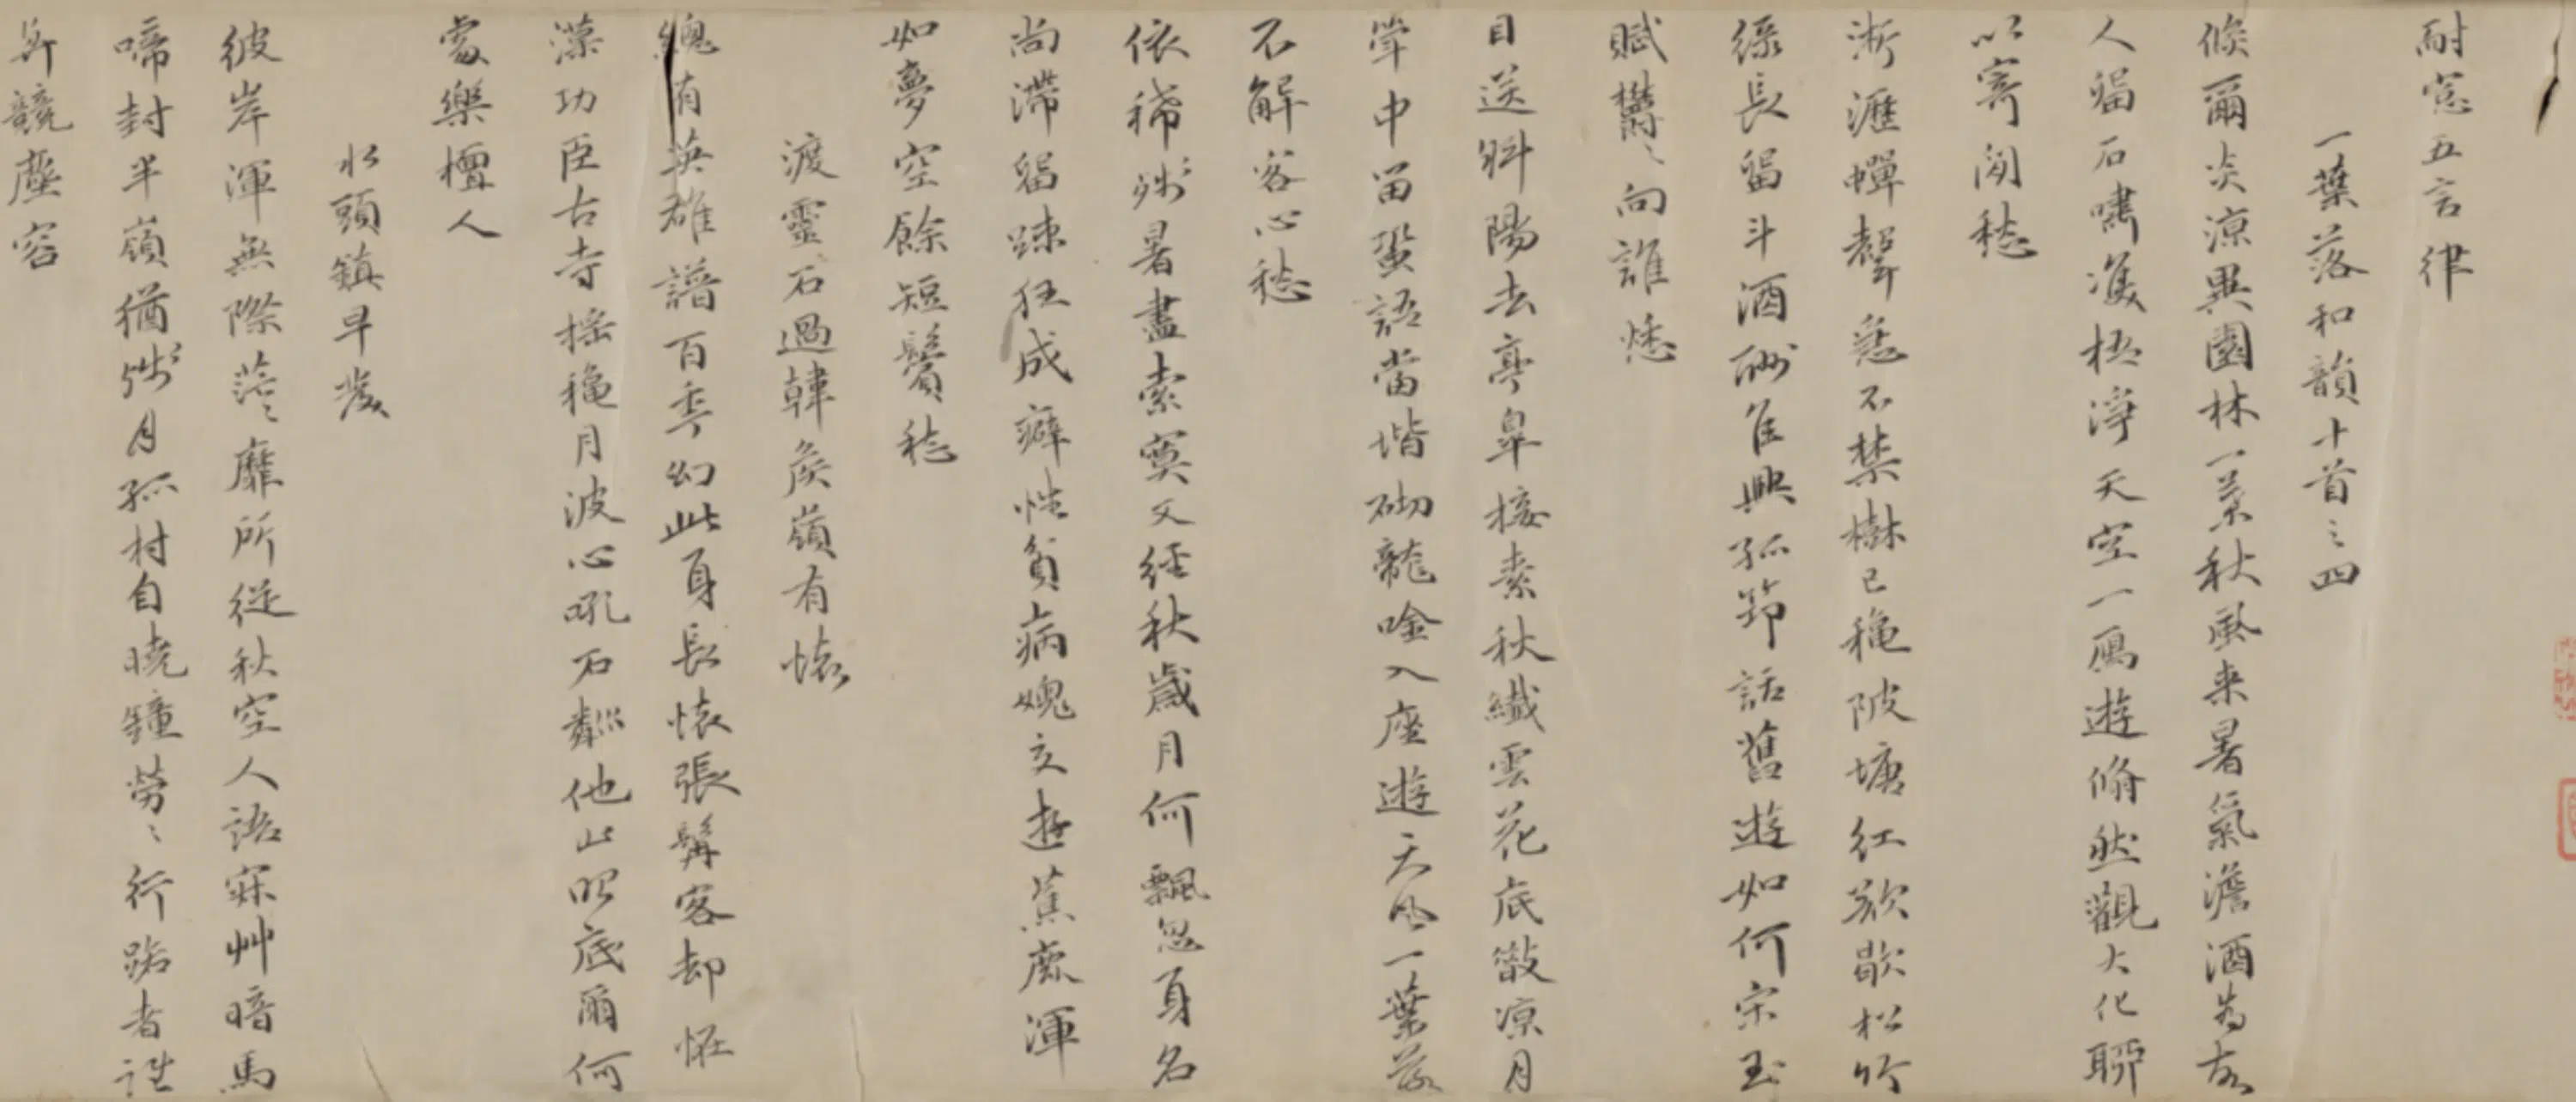 耐寒五言律
一葉落和韻十首之四
倏爾炎涼異園林一系秋風来暑氣澹酒為故
人留石嘯溪梧淨天空一鴈遊翛然觀大化聊
以寄閒愁
淅瀝蟬聲急不禁樹已秋陂塘紅欲歇松竹
綠長留斗酒酬佳興孤笻話舊遊如何宋玉
賦鬱〻向誰愁
目送斜陽去亭皋接素秋纖雲花底散凉月
掌中留蛩語當堦砌龍唫入座遊天風一葉落
不解客心愁
依稀殘暑盡索寞又經秋歲月何飄忽身名
尚滯留踈狂成癖性貧病媿交遊蕉鹿渾
如夢空餘短鬢愁
渡靈石過韓侯嶺有懷
總有英雄譜百年幻此身長懷張髯客却怪
漢功臣古寺搖秋月波心吼石粼他山照底爾何
處樂檀人
水頭鎮早發
彼岸渾無際茫〻靡所從秋空人語寂艸暗馬
啼封半嶺猶殘月孤村自曉鐘勞〻行路者誰
弃競塵容